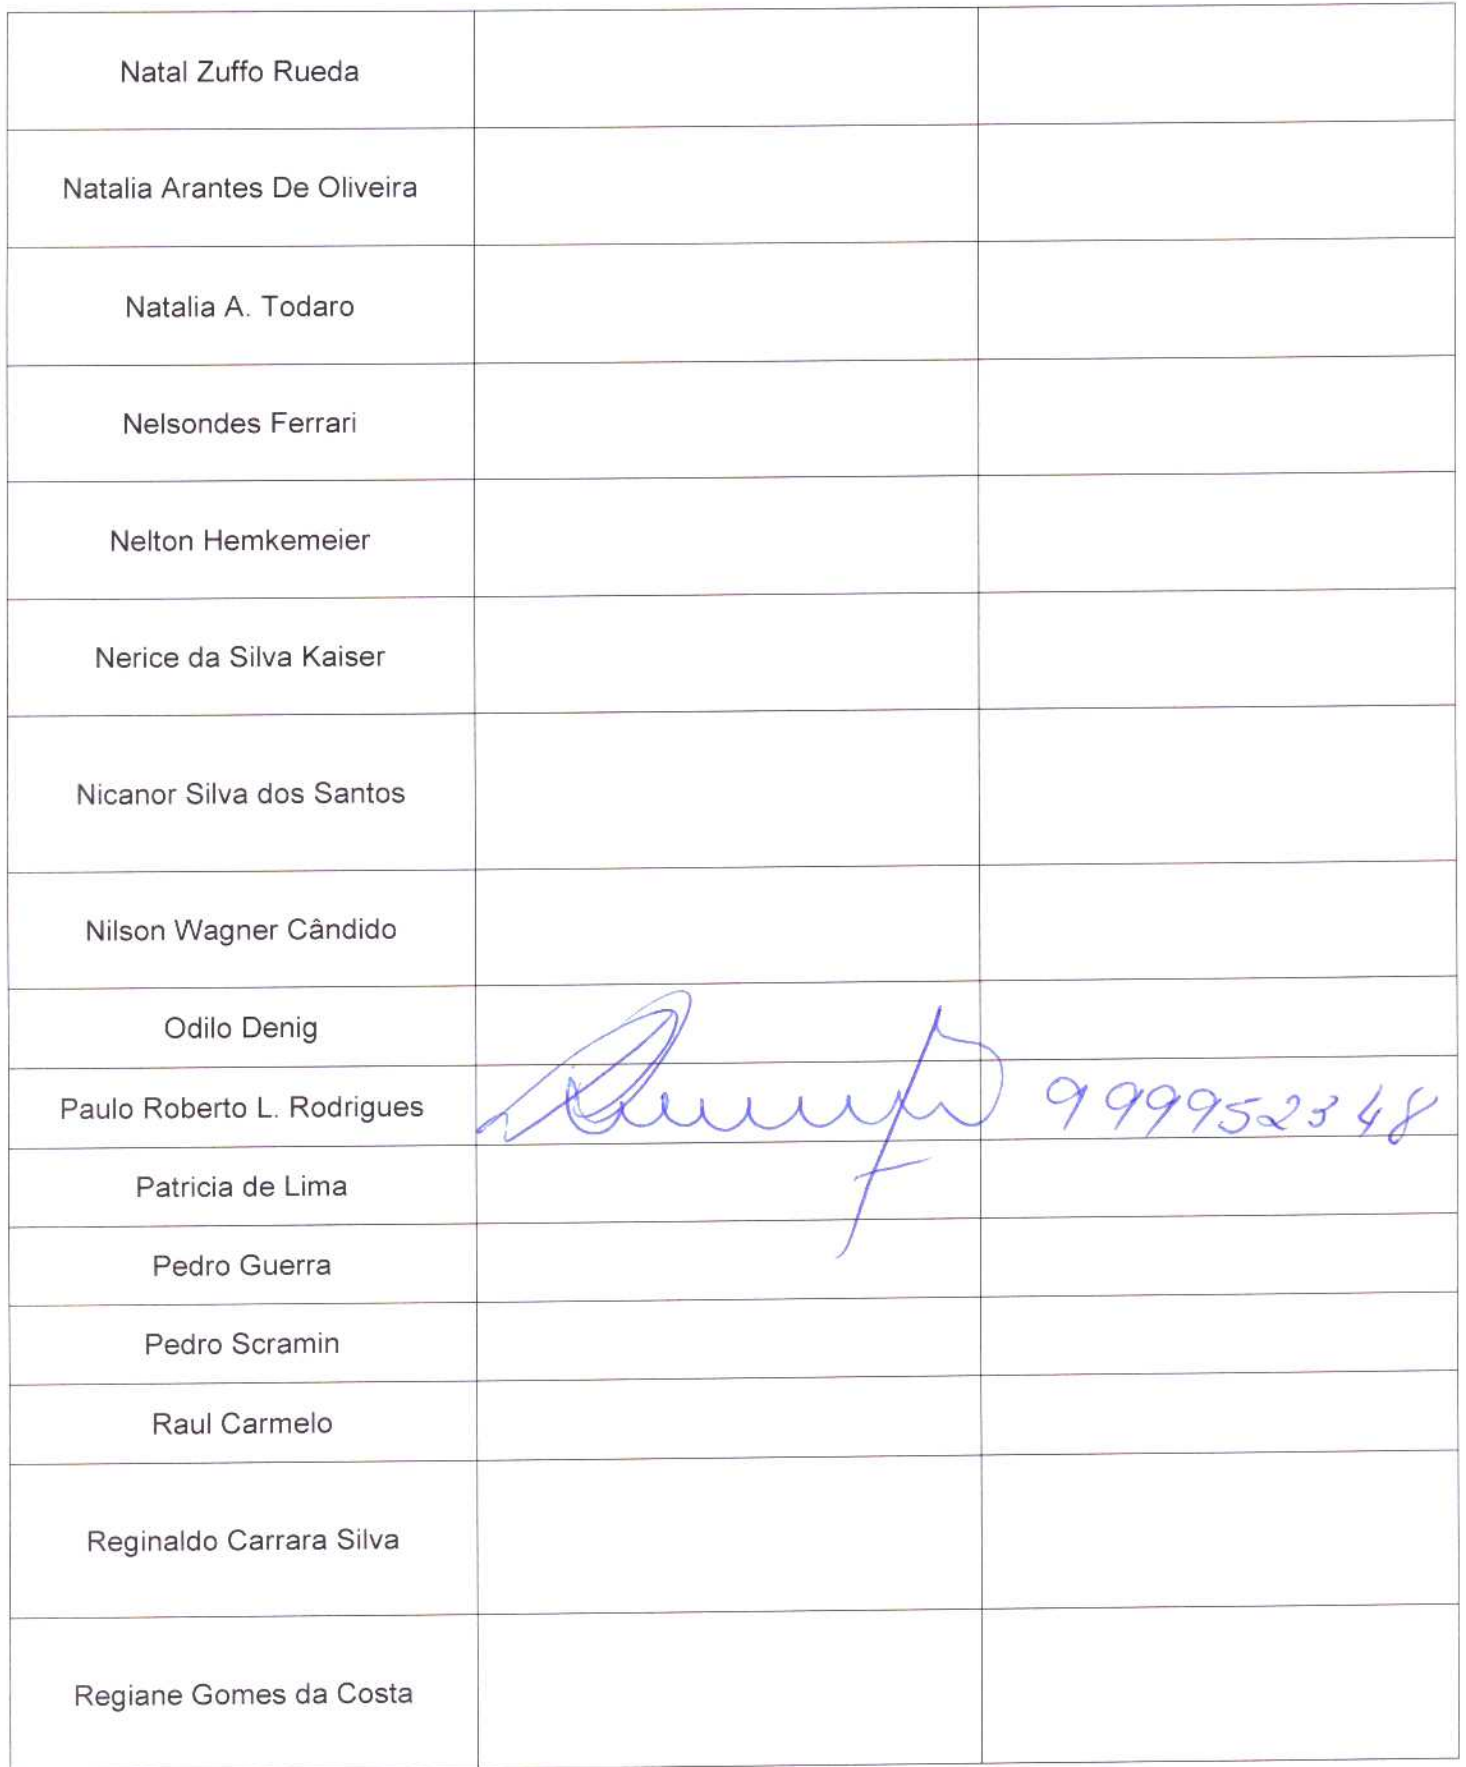 Natal Zuffo Rueda
Natalia Arantes De Oliveira
Natalia A. Todaro
Nelsondes Ferrari
Nelton Hemkemeier
Nerice da Silva Kaiser
Nicanor Silva dos Santos
Nilson Wagner Cândido
Odilo Denig
Paulo Roberto L. Rodrigues 999952348
Patricia de Lima
Pedro Guerra
Pedro Scramin
Raul Carmelo
Reginaldo Carrara Silva
Regiane Gomes da Costa